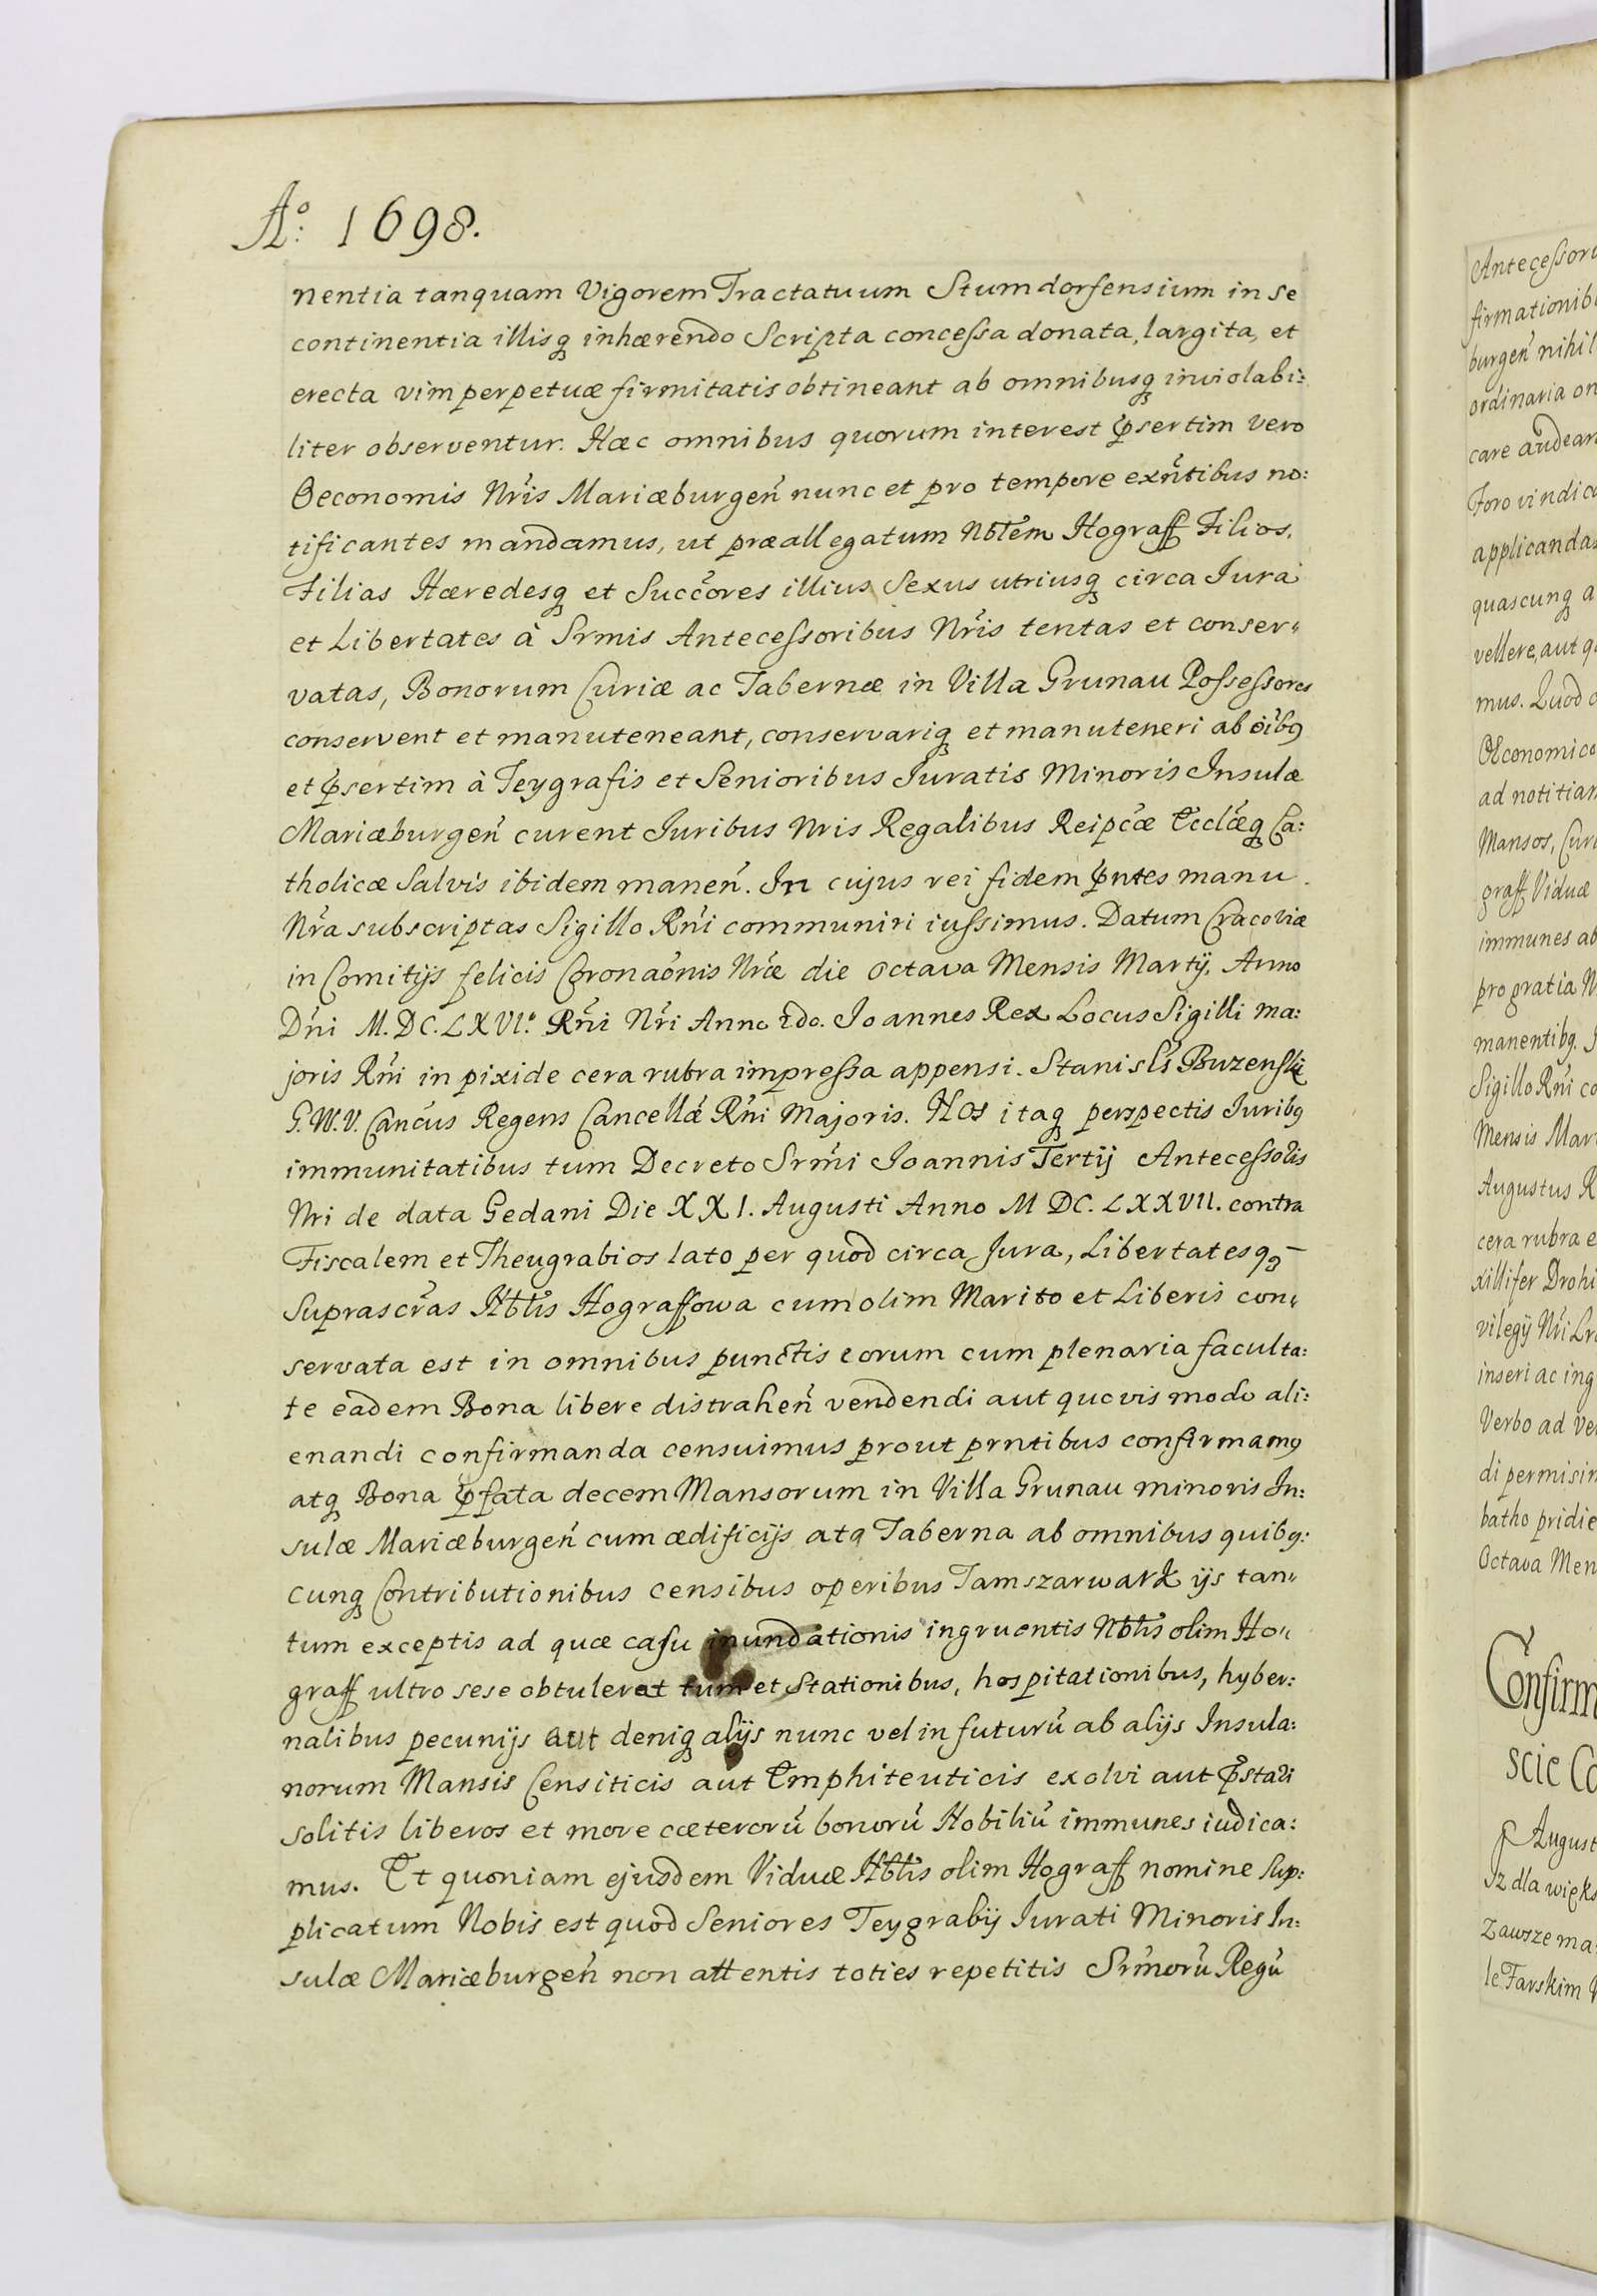 Aº: 1698.
nentia tanquam Vigorem Tractatuum Stumdorfensium in se
continentia illisq₃ inhærendo Scripta concessa donata, largita, et
erecta vim perpetuæ firmitatis obtineant ab omnibusq₃ inviolabi:
liter observentur. Hæc omnibus quorum interest p̃sertim vero
Oeconomis Nr̃is Mariæburgeñ nunc et pro tempore exñtibus no:
tificantes mandamus, ut præallegatum Nbłem Hograff Filios,
Filias Hæredesq₃ et Succ̃ores illius Sexus utriusq₃ circa Jura
et Libertates à Srmis Antecessoribus Nr̃is tentas et conser„
vatas, Bonorum Curiæ ac Tabernæ in Villa Grunau Possessores
conservent et manuteneant, conservariq₃ et manuteneri ab oib9
et p̃sertim à Teygrafis et Senioribus Juratis Minoris Insulæ
Mariæburgeñ curent Juribus Nris Regalibus Reipc̃æ Eccłæq₃ Ca:
tholicæ Salvis ibidem maneñ. In cujus rei fidem p̃ntes manu
Nr̃a subscriptas Sigillo Rñi communiri iussimus. Datum Cracoviæ
in Comitijs felicis Coronaõnis Nr̃æ die Octava Mensis Martij. Anno
Dñi M.DC.LXVIº Rñi Nr̃i Anno 2do. Joannes Rex Locus Sigilli ma:
joris Rñi in pixide cera rubra impressa appensi. Stanisls̃ Buzenski
G.W.V. Canc̃us Regens Cancellæ̃ Rñi Majoris. Nos itaq₃ perspectis Jurib9
immunitatibus tum Decreto Srm̃i Joannis Tertij Antecessoris
Nri de data Gedani Die XXI. Augusti Anno MDC.LXXVII. contra
Fiscalem et Theugrabios lato per quod circa Jura, Libertatesq₃
Suprascr̃as Nbłis Hograffowa cum olim Marito et Liberis con„
servata est in omnibus punctis eorum cum plenaria faculta:
te eadem Bona libere distraheñ vendendi aut quovis modo ali:
enandi confirmanda censuimus prout prntibus confirmam9
atq₃ Bona p̃fata decem Mansorum in Villa Grunau minoris In:
sulæ Mariæburgeñ cum ædificijs atq Taberna ab omnibus quib9:
cunq₃ Contributionibus censibus operibus Tamszarwark ijs tan„
tum exceptis ad quæ casu inundationis ingruentis Nbłis olim Ho„
graff ultro sese obtulerat tum et Stationibus, hospitationibus, hyber:
nalibus pecunijs aut deniq₃ alijs nunc vel in futurũ ab alijs Insula:
norum Mansis Censiticis aut Emphiteuticis exolvi aut p̃stari
solitis liberos et more cæterorũ bonorũ Nobiliũ immunes iudica:
mus. Et quoniam ejusdem Viduæ Nbłis olim Hograff nomine Sup:
plicatum Nobis est quod Seniores Teygrabij Jurati Minoris In:
sulæ Mariæburgeñ non attentis toties repetitis Srm̃orũ Regũ
Antecessor
firmationib
burgeñ nihil
ordinaria on
care audean
Foro vindic
applicandas
quascunq₃ a
vellere, aut q
mus. Quod
Œconomico
ad notitiam
Mansos, Curi
graff Viduæ
immunes ab
pro gratia N
manentib9.
Sigillo Rñi co
Mensis Mar
Augustus R
cera rubra e
xillifer Drohi
vilegij Nr̃i
inseri ac ing
Verbo ad Ve
di permisi
batho pridie
Octava Men
Confirm
scie Co
August
Iz dla więks
Zawsze ma
le Farskim